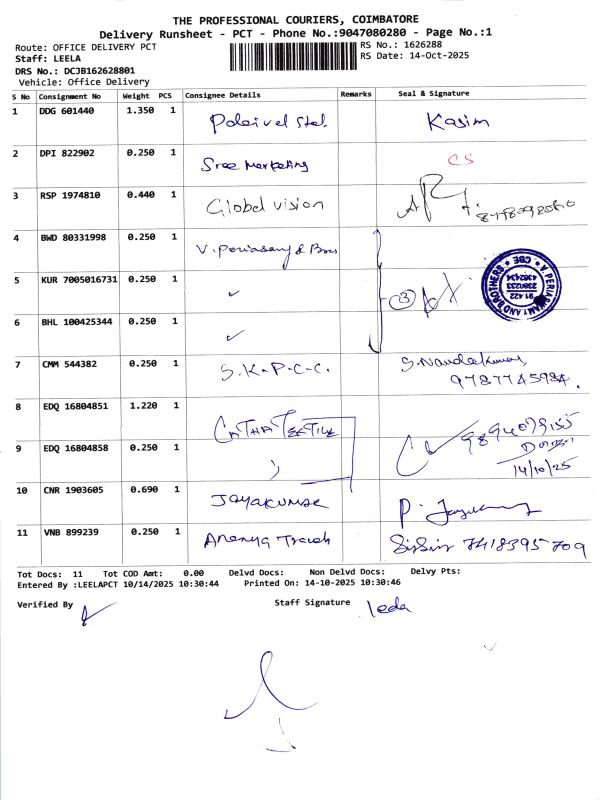 THE PROFESSIONAL COURIERS, COIMBATORE
Delivery Runsheet - PCT - Phone No.:9047080280 - Page No.:1
Route: OFFICE DELIVERY PCT
RS No.: 1626288
Staff: LEELA
RS Date: 14-Oct-2025
DRS No.: DCJB162628801
Vehicle: Office Delivery
S No Consignment No Weight PCS Consignee Details Remarks Seal & Signature
1 DDG 601440 1.350 1 Kasim
2 DPI 822902 0.250 1 Sree Marketing CS
3 RSP 1974810 0.440 1 Global vision
4 BWD 80331998 0.250 1 V. Periasamy & Bros
5 KUR 7005016731 0.250 1 ✓ 3
6 BHL 100425344 0.250 1 ✓
V PERIASWAMY AND BROTHERS * CBE *
91 422
2380233
4362434
7 CMM 544382 0.250 1 S.K-P-C-C. S. Nandakumar,
9787745984.
8 EDQ 16804851 1.220 1
9 EDQ 16804858 0.250 1
14/10/25
10 CNR 1903605 0.690 1 JAYAKUMAR P. Jayakumar
11 VNB 899239 0.250 1 Ananya Travels 7418395709
Tot Docs: 11 Tot COD Amt: 0.00 Delvd Docs: Non Delvd Docs: Delvy Pts:
Entered By :LEELAPCT 10/14/2025 10:30:44 Printed On: 14-10-2025 10:30:46
Verified By
Staff Signature leela